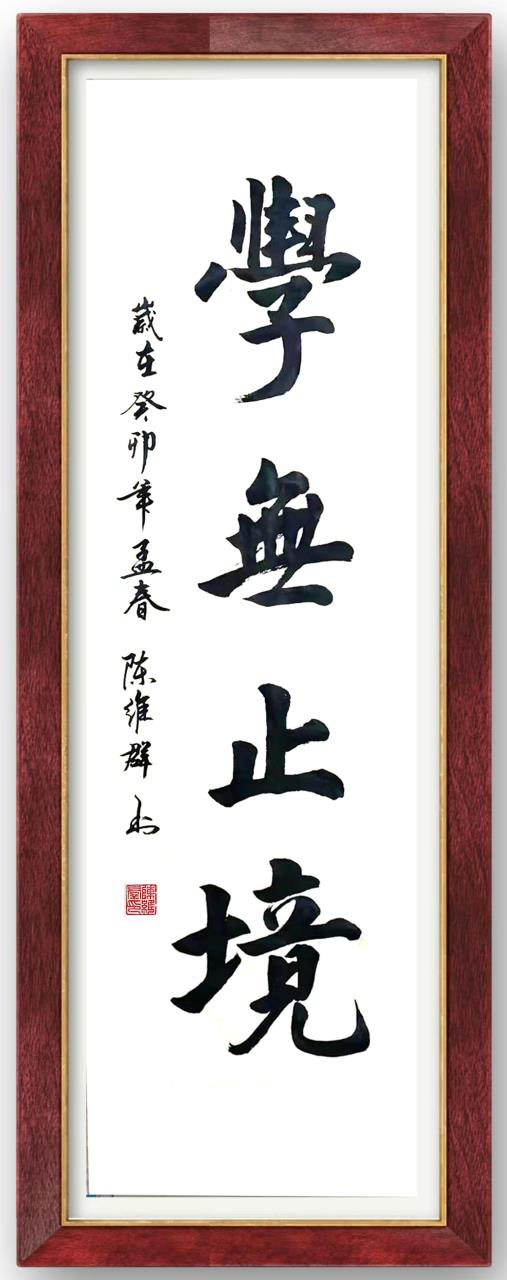 學無止境
歲在癸卯年孟春 陈維群书